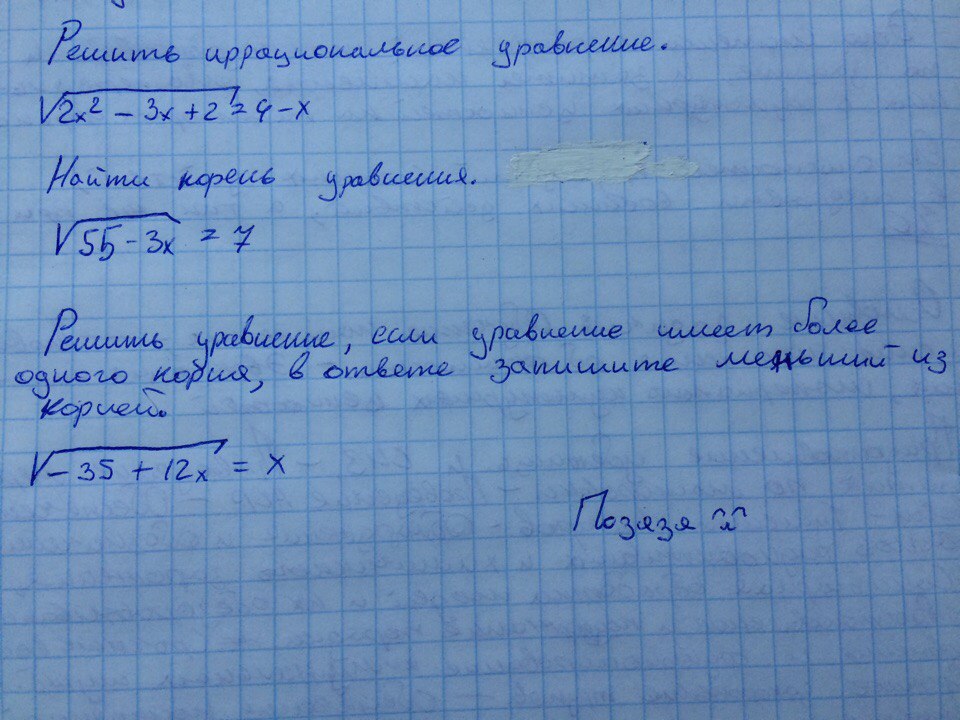 Решить иррациональное уравнение.
√2x² - 3x + 2 = 4 - x
Найти корень уравнения.
√55 - 3x = 7
Решить уравнение, если уравнение имеет более
одного корня, в ответе запишите меньший из
корней.
√-35 + 12x = x
Позязя ^_^